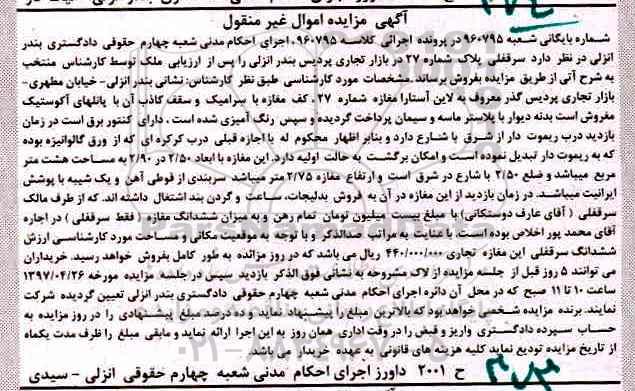 آگهی مزایده اموال غیر منقول
شماره بایگانی شعبه ۹۶۰۷۹۵ در پرونده اجرائی کلاسه ۹۶۰۷۹۵. اجرای احکام مدنی شعبه چهارم حقوقی دادگستری بندر
انزلی در نظر دارد سرقفلی پلاک شماره ۲۷ در بازار تجاری پردیس بندر انزلی را پس از ارزیابی ملک توسط کارشناس منتخب
به شرح آتی از طریق مزایده بفروش برساند. مشخصات مورد کارشناسی طبق نظر کارشناس: نشانی بندر انزلی- خیابان مطهری-
بازار تجاری پردیس گذر معروف به لاین آستارا مغازه شماره ۲۷. کف مغازه با سرامیک و سقف کاذب آن با پانلهای آکوستیک
مفروش است بدنه دیوار با پلاستر ماسه و سیمان پرداخت گردیده و سپس رنگ آمیزی شده است. دارای کنتور برق است در زمان
بازدید درب ریموت دار از شرق با شارع دارد و بنابر اظهار محکوم له با اجازه قبلی درب کرکره ای که از ورق گالوانیزه بوده
که به ریموت دار تبدیل نموده است و امکان برگشت به حالت اولیه دارد. این مغازه با ابعاد ۲/۵۰ در ۲/۹۰ به مساحت هشت متر
مربع میباشد و ضلع ۲/۵۰ با شارع در شرق است و ارتفاع مغازه ۲/۷۵ متر میباشد سربندی از قوطی آهن و یک شیبه با پوشش
ایرانیت میباشد. در زمان بازدید از این مغازه در آن به فروش بدلیجات، ساعت و گردن بند اشتغال داشته اند. که از طرف مالک
سرقفلی ( آقای عارف دوستکانی) با مبلغ بیست میلیون تومان تمام رهن و به میزان ششدانگ مغازه ( فقط سرقفلی ) در اجاره
آقای محمد پور اخلاص بوده است. با عنایت به مراتب صدالذکر و با توجه به موقعیت مکانی و مساحت مورد کارشناسی ارزش
ششدانگ سرقفلی این مغازه تجاری ۴۴۰/۰۰۰/۰۰۰ ریال می باشد که در روز مزائده به طور کامل بفروش خواهد رسید. خریداران
می توانند ۵ روز قبل از جلسه مزایده از لاک مشروحه به نشانی فوق الذکر بازدید سپس در جلسه مزایده مورخه ۱۳۹۷/۰۴/۲۶
ساعت ۱۰ تا ۱۱ صبح که در محل آن دائره اجرای احکام مدنی شعبه چهارم حقوقی دادگستری بندر انزلی تعیین گردیده شرکت
نمایند. برنده مزایده شخصی خواهد بود که بالاترین مبلغ را پیشنهاد نماید و ده درصد مبلغ پیشنهادی را در روز مزایده به
حساب سپرده دادگستری واریز و قبض را در وقت اداری همان روز به این اجرا ارائه نماید و مابقی مبلغ را ظرف مدت یکماه
از تاریخ مزایده تودیع نماید کلیه هزینه های قانونی به عهده خریدار می باشد.
ح ۲۰۰۱ داورز اجرای احکام مدنی شعبه چهارم حقوقی انزلی – سیدی